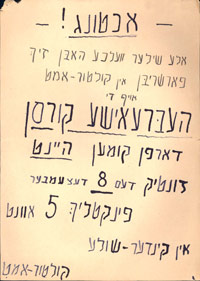 — אכטונג! —
אלע שילער וועלכע האבן זיך
פארשריבן אין קולטור-אמט
אויף די
העברעאישע קורסן
דארפן קומען היינט
זונטיק דעם 8 דעצעמבער
פינקטליך 5 אוונט
אין קינדער-שולע
קולטור-אמט